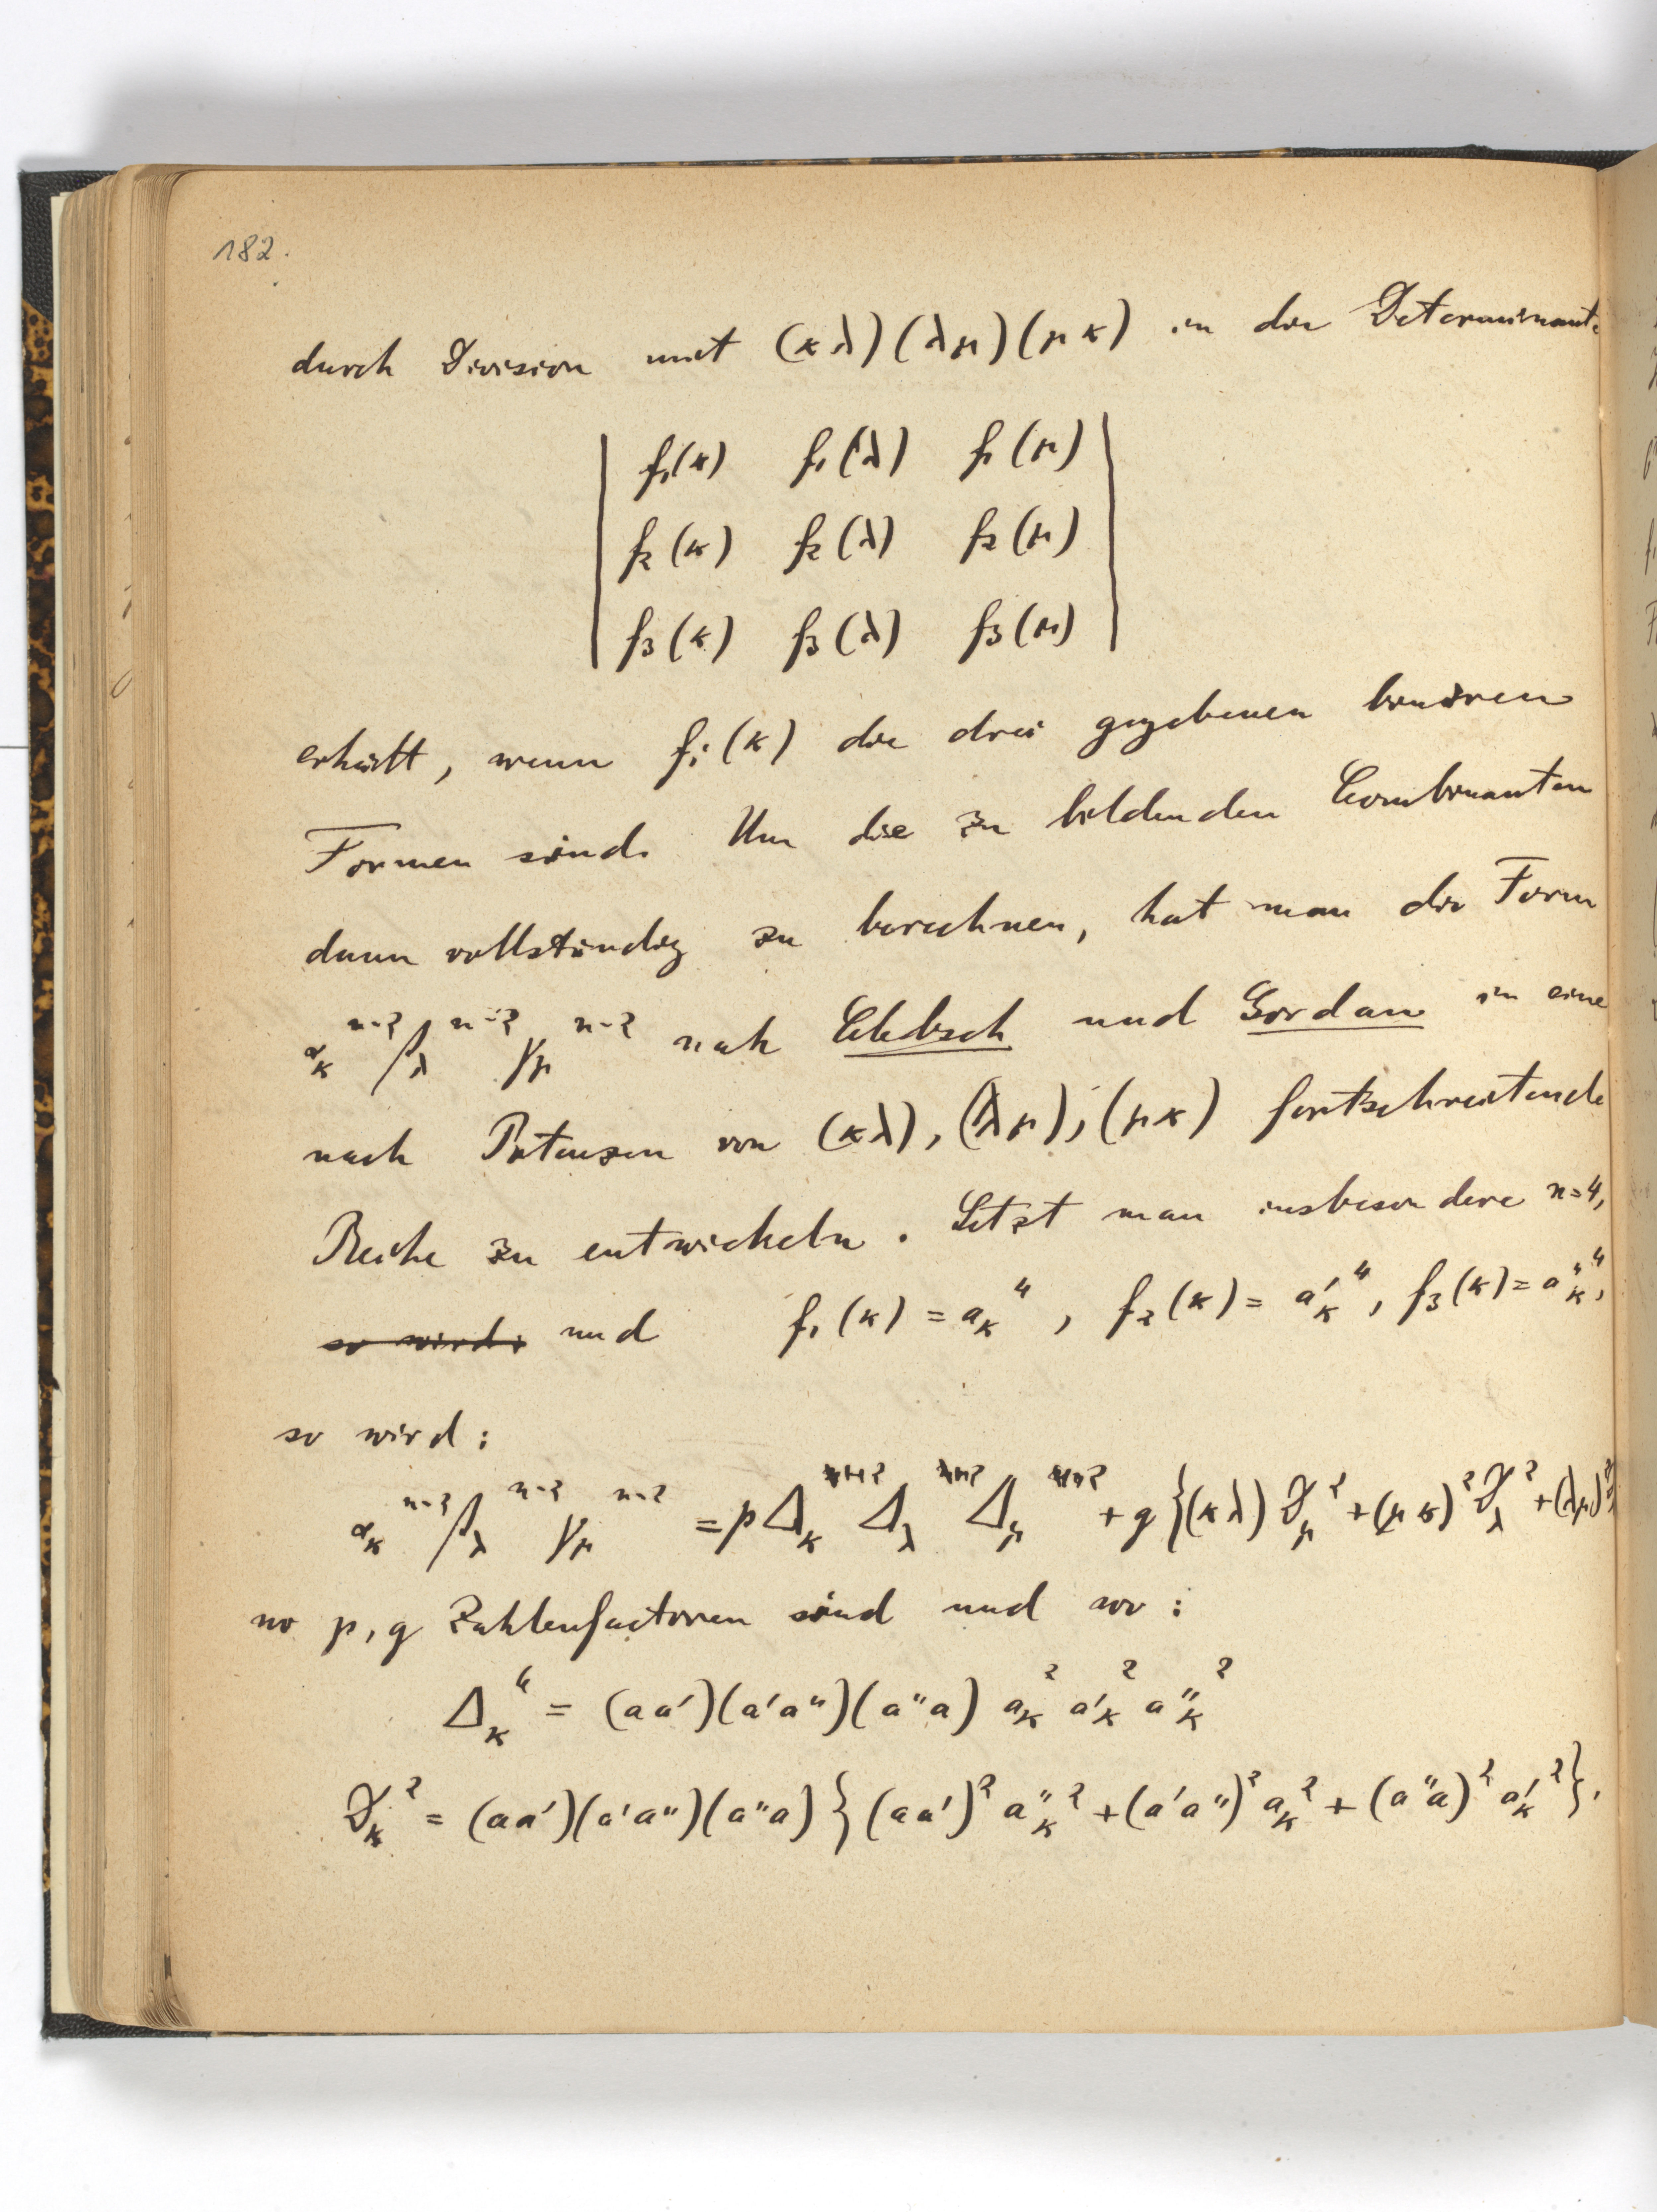 182.
durch Division mit (κλ)(λμ)(μκ) in die Determinante
f₁(κ) f₁(λ) f₁(μ)
f₂(κ) f₂(λ) f₂(μ)
f₃(κ) f₃(λ) f₃(μ)
erhält, wenn fᵢ(κ) die drei gegebenen binären
Formen sind. Um die zu bildenden Combinanten
dann vollständig zu berechnen, hat man die Form
α_κ^{n-2} β_λ^{n-2} γ_μ^{n-2} nach Clebsch und Gordan in eine
nach Potenzen von (κλ), (λμ), (μκ) fortschreitende
Reihe zu entwickeln. Setzt man insbesondere n=4,
so wird: und f₁(κ) = a_κ^4, f₂(κ) = a'_κ^4, f₃(κ) = a''_κ^4,
so wird:
α_κ^{n-2} β_λ^{n-2} γ_μ^{n-2} = p Δ_κ^2 Δ_λ^2 Δ_μ^2 + q {(κλ) ϑ_μ^2 + (μκ)^2 ϑ_λ^2 + (λμ)^2
wo p, q Zahlenfactoren sind und wo:
Δ_κ^6 = (aa')(a'a'')(a''a) a_κ^2 a'_κ^2 a''_κ^2
ϑ_κ^2 = (aa')(a'a'')(a''a) {(aa')^2 a''_κ^2 + (a'a'')^2 a_κ^2 + (a''a)^2 a'_κ^2}.